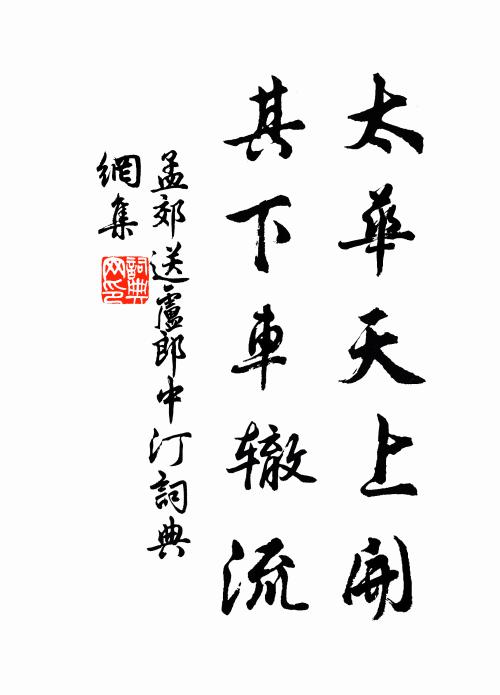 太華天上開
其下車辙流
孟郊送盧郎中汀詞典
網集
詞典
网印